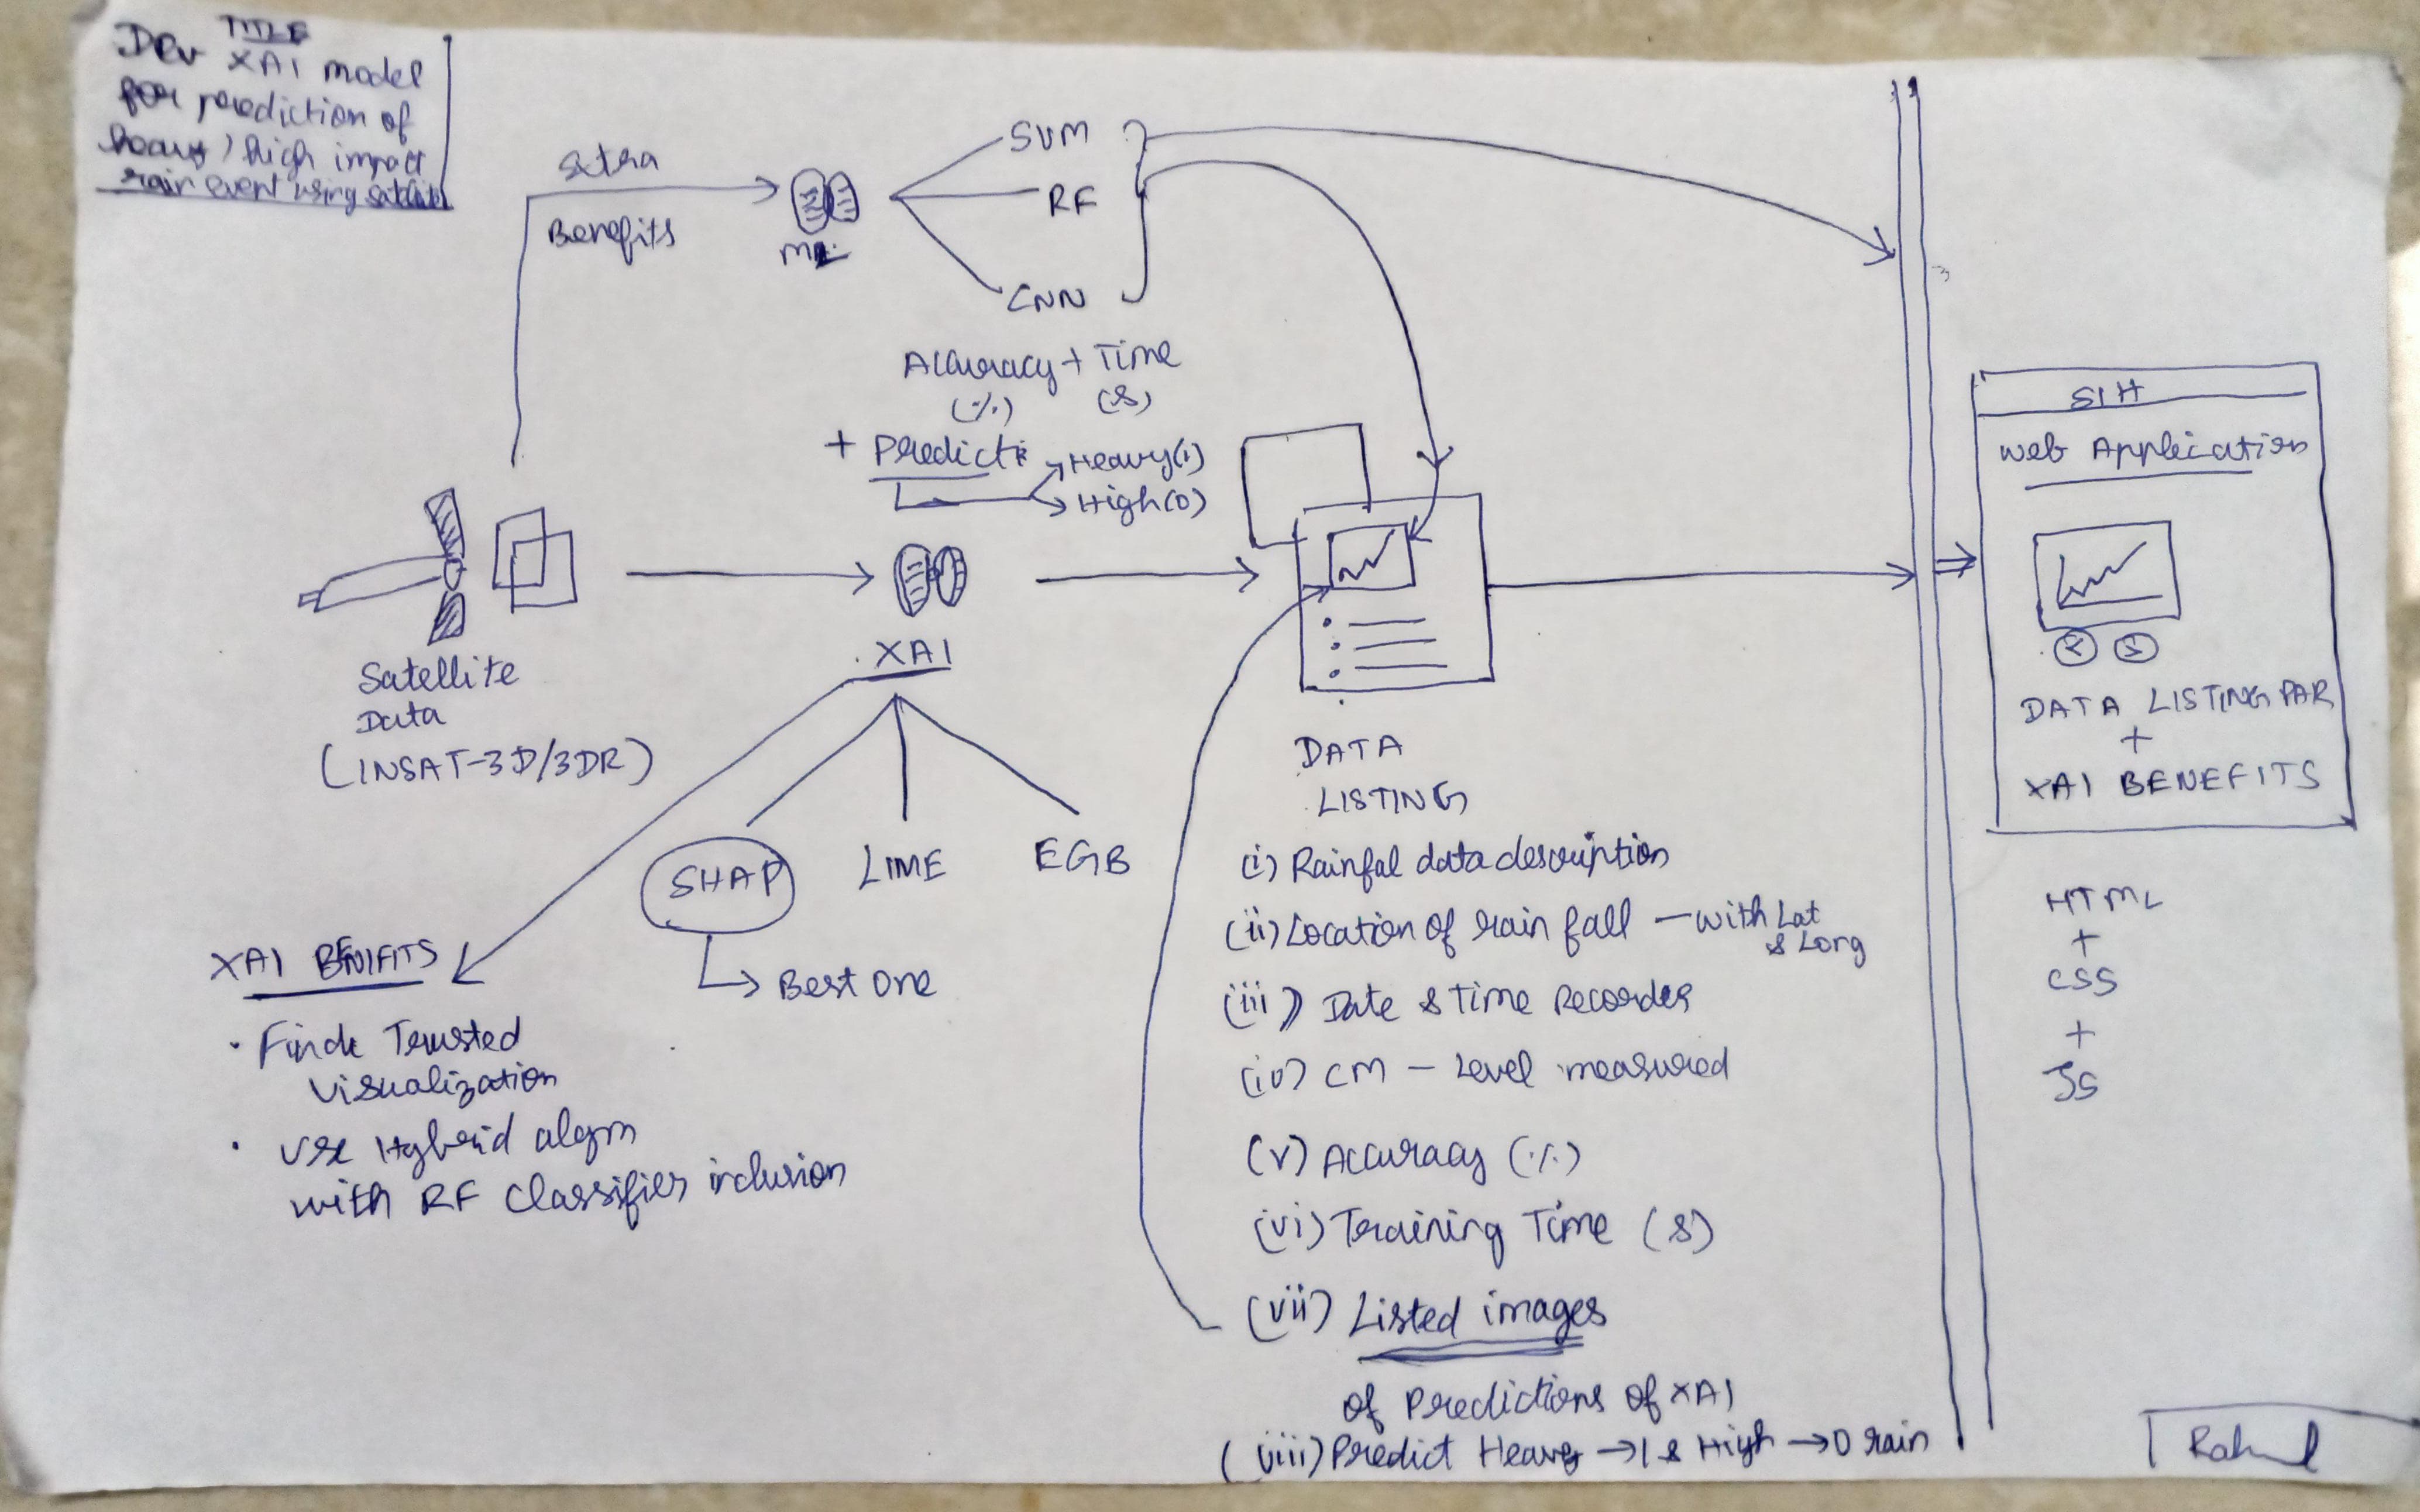 TITLE
Dev XAI model
for prediction of
heavy / high impact
rain event using satellite
Extra
Benefits
ML
SVM
RF
CNN
Accuracy + Time
(%) (s)
+ Predict
Heavy(1)
High(0)
Satellite
Data
(INSAT-3D/3DR)
XAI
SHAP
LIME
EGB
Best one
XAI BENIFITS
• Finde Trusted
Visualization
• Use Hybrid algm
with RF Classifier inclusion
DATA
LISTING
(i) Rainfal data description
(ii) Location of rain fall – with Lat
& Long
(iii) Date & Time Recorder
(iv) CM – Level measured
(v) Accuracy (%)
(vi) Training Time (s)
(vii) Listed images
of Predictions of XAI
(viii) Predict Heavy → 1 & High → 0 rain
SIH
Web Application
DATA LISTING PAR
+
XAI BENEFITS
HTML
+
CSS
+
JS
Rahul